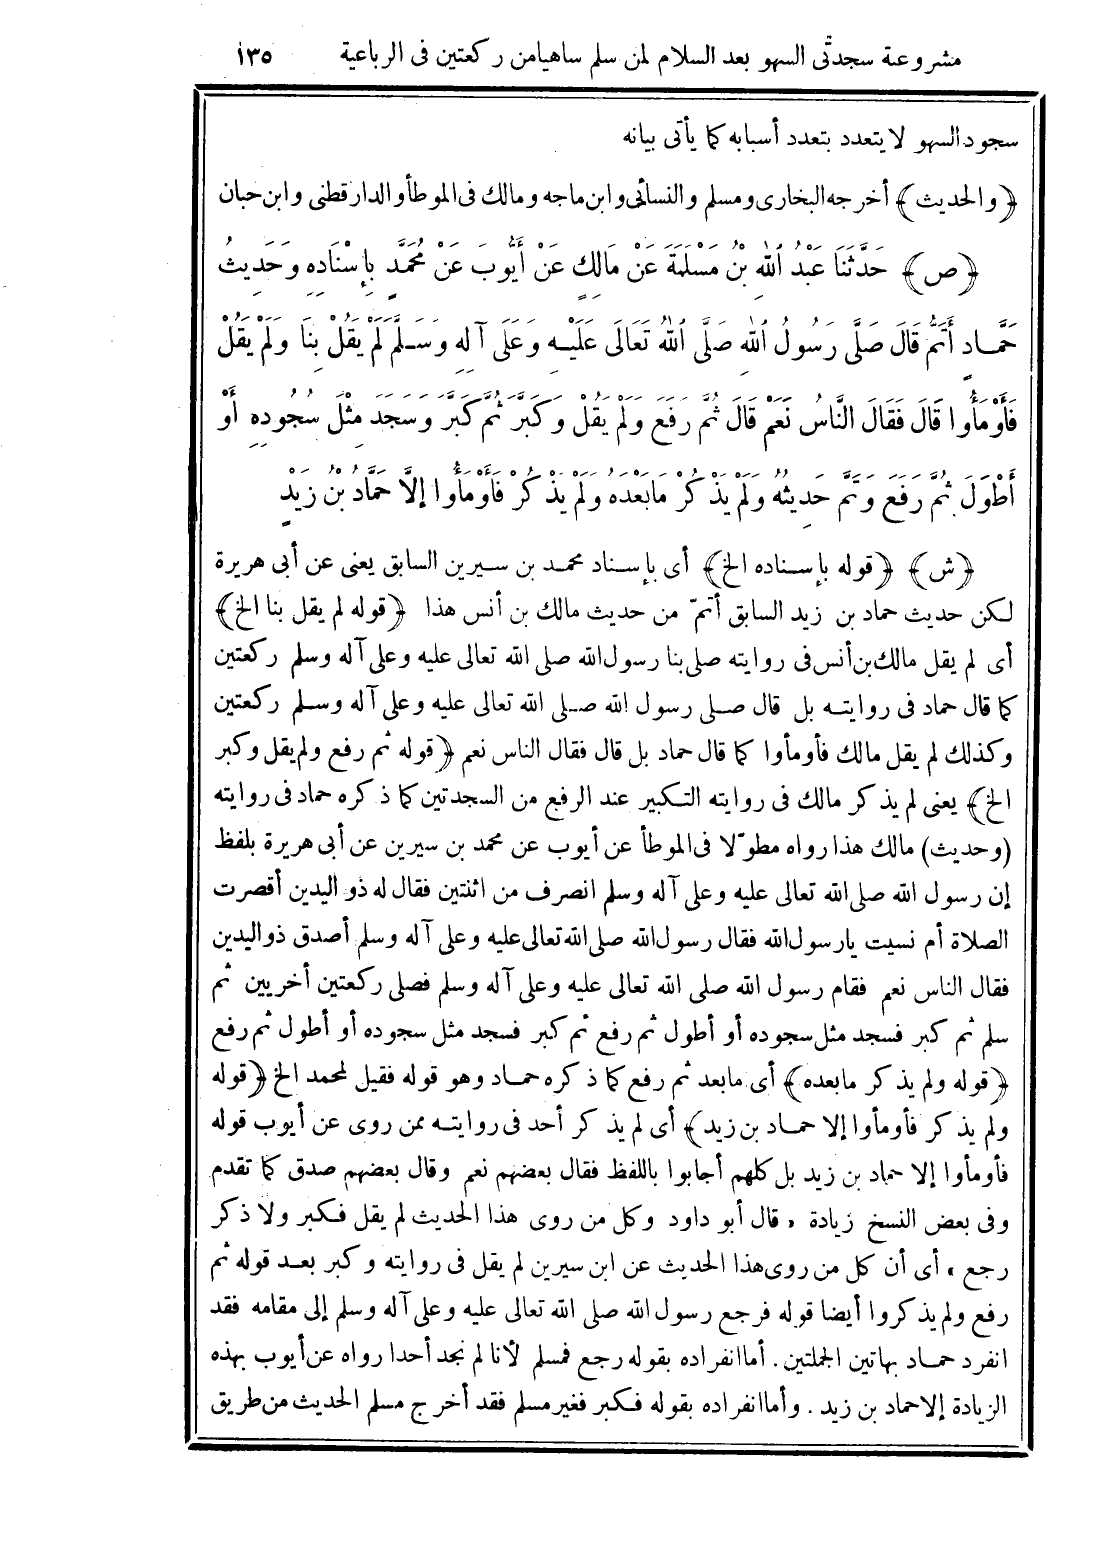 مشروعية سجدتى السهو بعد السلام لمن سلم ساهيا من ركعتين فى الرباعية ١٣٥
سجود السهو لا يتعدد بتعدد أسبابه كما يأتى بيانه
﴿والحديث﴾ أخرجه البخارى ومسلم والنسائى وابن ماجه ومالك فى الموطأ والدارقطنى وابن حبان
﴿ص﴾ حَدَّثَنَا عَبْدُ اللهِ بْنُ مَسْلَمَةَ عَنْ مَالِكٍ عَنْ أَيُّوبَ عَنْ مُحَمَّدٍ بِإِسْنَادِهِ وَحَدِيثُ
حَمَّادٍ أَتَمُّ قَالَ صَلَّى رَسُولُ اللهِ صَلَّى اللهُ تَعَالَى عَلَيْهِ وَعَلَى آلِهِ وَسَلَّمَ لَمْ يَقُلْ بِنَا وَلَمْ يَقُلْ
فَأَوْمَأُوا قَالَ فَقَالَ النَّاسُ نَعَمْ قَالَ ثُمَّ رَفَعَ وَلَمْ يَقُلْ وَكَبَّرَ ثُمَّ كَبَّرَ وَسَجَدَ مِثْلَ سُجُودِهِ أَوْ
أَطْوَلَ ثُمَّ رَفَعَ وَتَمَّ حَدِيثُهُ وَلَمْ يَذْكُرْ مَا بَعْدَهُ وَلَمْ يَذْكُرْ فَأَوْمَأُوا إِلَّا حَمَّادُ بْنُ زَيْدٍ
﴿ش﴾ ﴿قوله بإسناده الخ﴾ أى بإسناد محمد بن سيرين السابق يعنى عن أبى هريرة
لكن حديث حماد بن زيد السابق أتمّ من حديث مالك بن أنس هذا ﴿قوله لم يقل بنا الخ﴾
أى لم يقل مالك بن أنس فى روايته صلى بنا رسول الله صلى الله تعالى عليه وعلى آله وسلم ركعتين
كما قال حماد فى روايته بل قال صلى رسول الله صلى الله تعالى عليه وعلى آله وسلم ركعتين
وكذلك لم يقل مالك فأومأوا كما قال حماد بل قال فقال الناس نعم ﴿قوله ثم رفع ولم يقل وكبر
الخ﴾ يعنى لم يذكر مالك فى روايته التكبير عند الرفع من السجدتين كما ذكره حماد فى روايته
(وحديث) مالك هذا رواه مطوّلا فى الموطأ عن أيوب عن محمد بن سيرين عن أبى هريرة بلفظ
إن رسول الله صلى الله تعالى عليه وعلى آله وسلم انصرف من اثنتين فقال له ذو اليدين أقصرت
الصلاة أم نسيت يارسول الله فقال رسول الله صلى الله تعالى عليه وعلى آله وسلم أصدق ذو اليدين
فقال الناس نعم فقام رسول الله صلى الله تعالى عليه وعلى آله وسلم فصلى ركعتين أخريين ثم
سلم ثم كبر فسجد مثل سجوده أو أطول ثم رفع ثم كبر فسجد مثل سجوده أو أطول ثم رفع
﴿قوله ولم يذكر مابعده﴾ أى مابعد ثم رفع كما ذكره حماد وهو قوله فقيل لمحمد الخ ﴿قوله
ولم يذكر فأومأوا إلا حماد بن زيد﴾ أى لم يذكر أحد فى روايته ممن روى عن أيوب قوله
فأومأوا إلا حماد بن زيد بل كلهم أجابوا باللفظ فقال بعضهم نعم وقال بعضهم صدق كما تقدم
وفى بعض النسخ زيادة «قال أبو داود وكل من روى هذا الحديث لم يقل فكبر ولا ذكر
رجع» أى أن كل من روى هذا الحديث عن ابن سيرين لم يقل فى روايته وكبر بعد قوله ثم
رفع ولم يذكروا أيضا قوله فرجع رسول الله صلى الله تعالى عليه وعلى آله وسلم إلى مقامه فقد
انفرد حماد بهاتين الجملتين. أما انفراده بقوله رجع فمسلم لأنا لم نجد أحدا رواه عن أيوب بهذه
الزيادة إلا حماد بن زيد. وأما انفراده بقوله فكبر فغير مسلم فقد أخرج مسلم الحديث من طريق